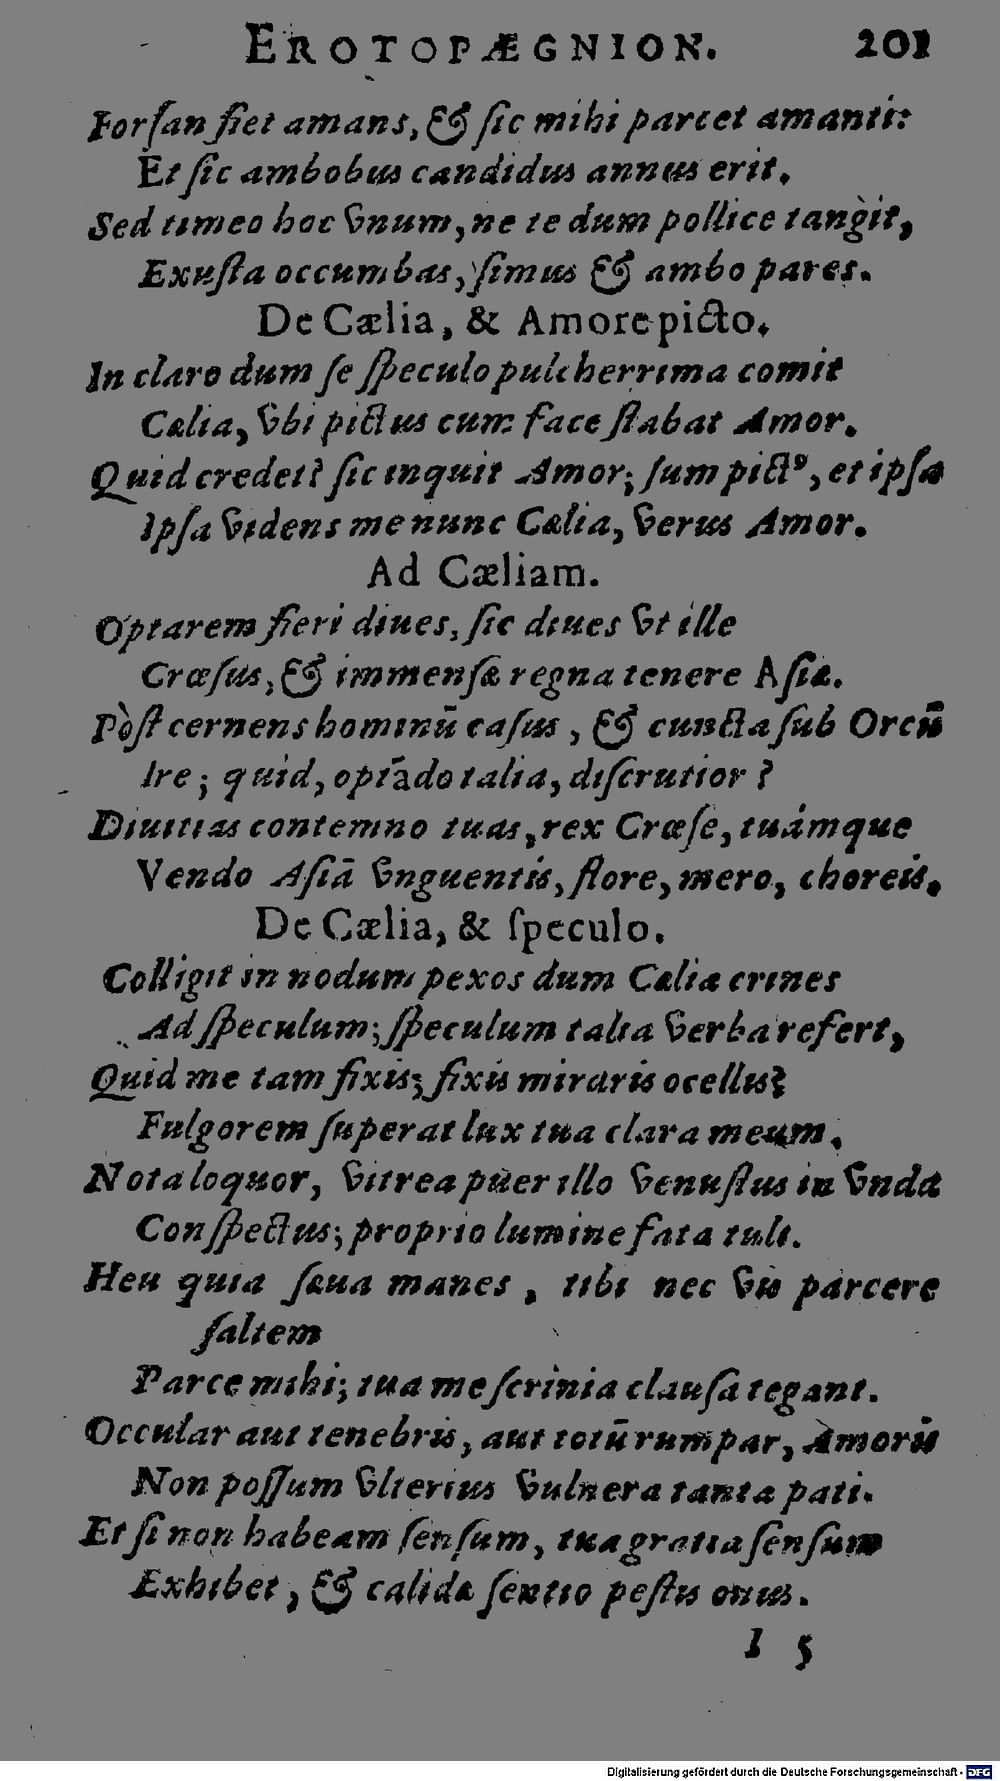 EROTOPÆGNION. 201
Forſan fiet amans, & ſic mihi parcet amanti:
Et ſic ambobus candidus annus erit.
Sed timeo hoc vnum, ne te dum pollice tangit,
Exuſta occumbas, ſimus & ambo pares.
De Cælia, & Amore picto.
In claro dum ſe ſpeculo pulcherrima comit
Cælia, vbi pictus cum face ſtabat Amor.
Quid credett? ſic inquit Amor; ſum pictꝰ, et ipſa
Ipſa videns me nunc Cælia, verus Amor.
Ad Cæliam.
Optarem fieri diues, ſic diues vt ille
Crœſus, & immenſæ regna tenere Aſiæ.
Pòſt cernens hominū caſus, & cuncta ſub Orcū
Ire; quid, optādo talia, diſcrutior?
Diuitias contemno tuas, rex Crœſe, tuámque
Vendo Aſiā vnguentis, flore, mero, choreis.
De Cælia, & ſpeculo.
Colligit in nodum pexos dum Cælia crines
Ad ſpeculum; ſpeculum talia verba refert,
Quid me tam fixis; fixis miraris ocellis?
Fulgorem ſuperat lux tua clara meum.
Nota loquor, vitrea puer illo venuſtus in vnda
Conſpectus; proprio lumine fata tult.
Heu quia ſæua manes, tibi nec vis parcere
ſaltem
Parce mihi; tua me ſcrinia clauſa tegant.
Occular aut tenebris, aut totū rumpar, Amoris
Non poſſum vlterius vulnera tanta pati.
Et ſi non habeam ſenſum, tua gratia ſenſum
Exhibet, & calidæ ſentio peſtis onus.
I 5
Digitalisierung gefördert durch die Deutsche Forschungsgemeinschaft - DFG